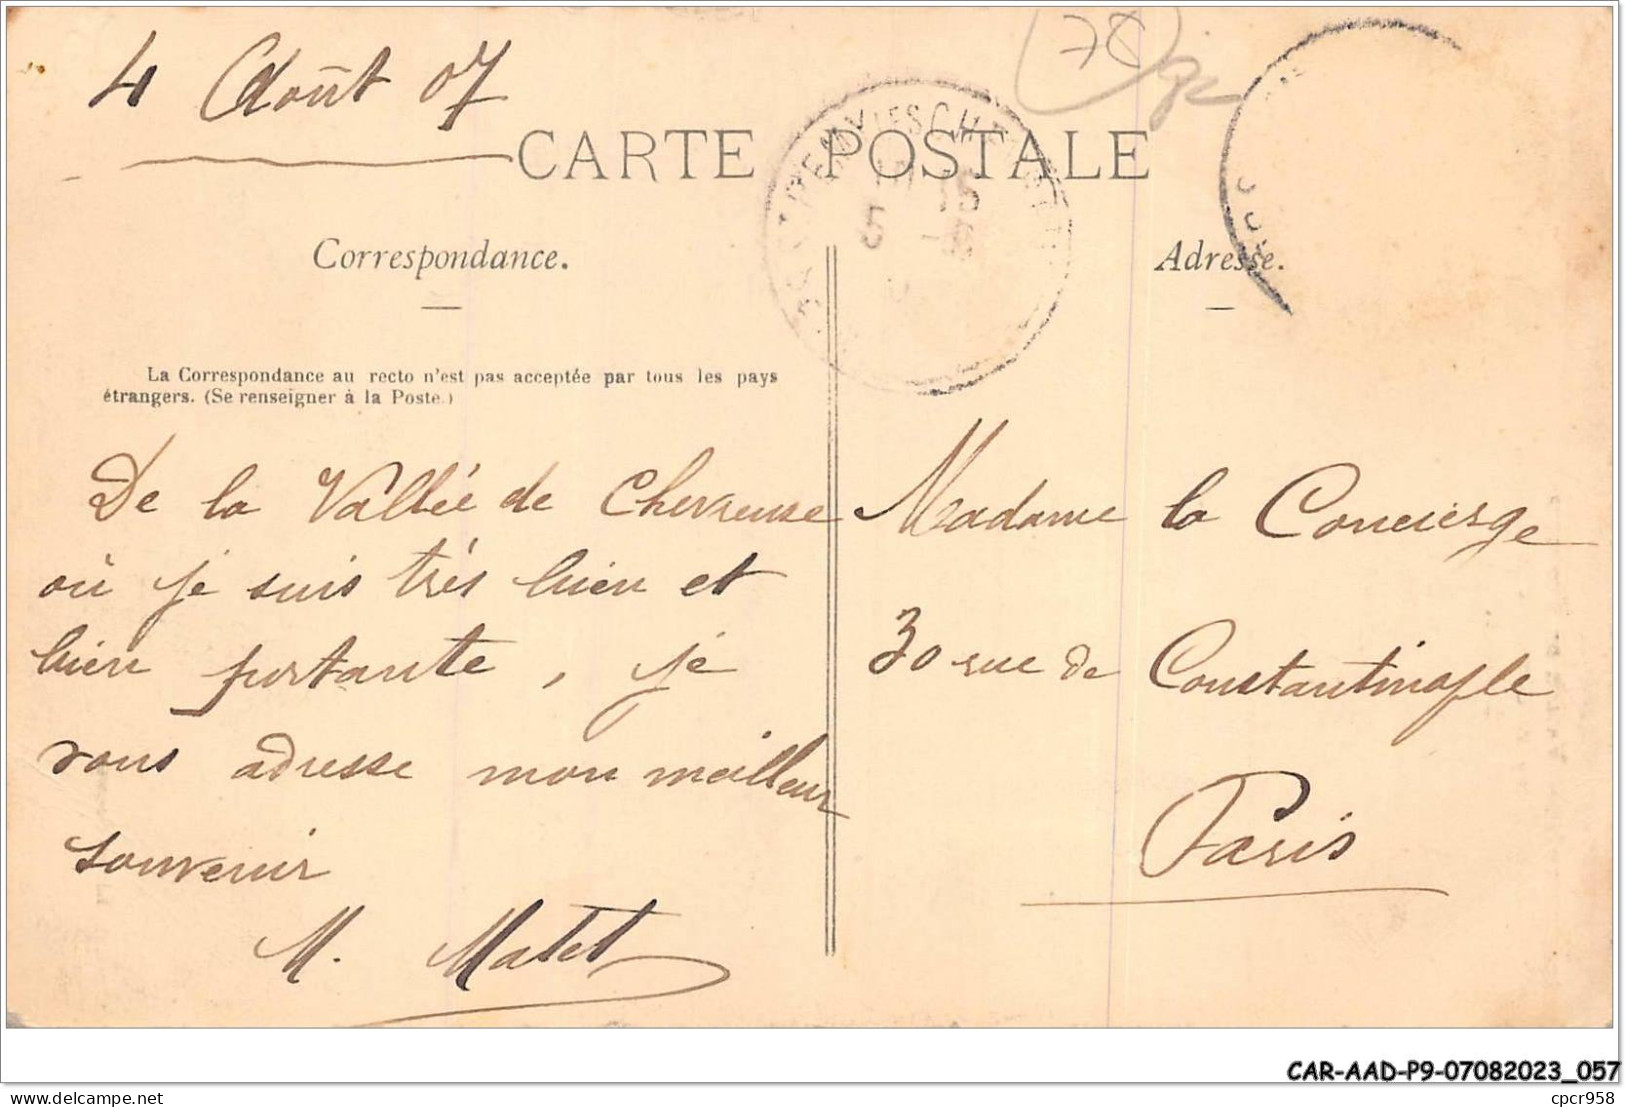 4 Août 07
78
CARTE POSTALE
ST REMY LES CHEVREUSE
15
5 -8
Correspondance.
Adresse.
La Correspondance au recto n'est pas acceptée par tous les pays
étrangers. (Se renseigner à la Poste.)
De la Vallée de Chevreuse
où je suis très bien et
bien portante, je
vous adresse mon meilleur
souvenir
M. Matet
Madame la Concierge
30 rue de Constantinople
Paris
CAR-AAD-P9-07082023_057
cpcr958